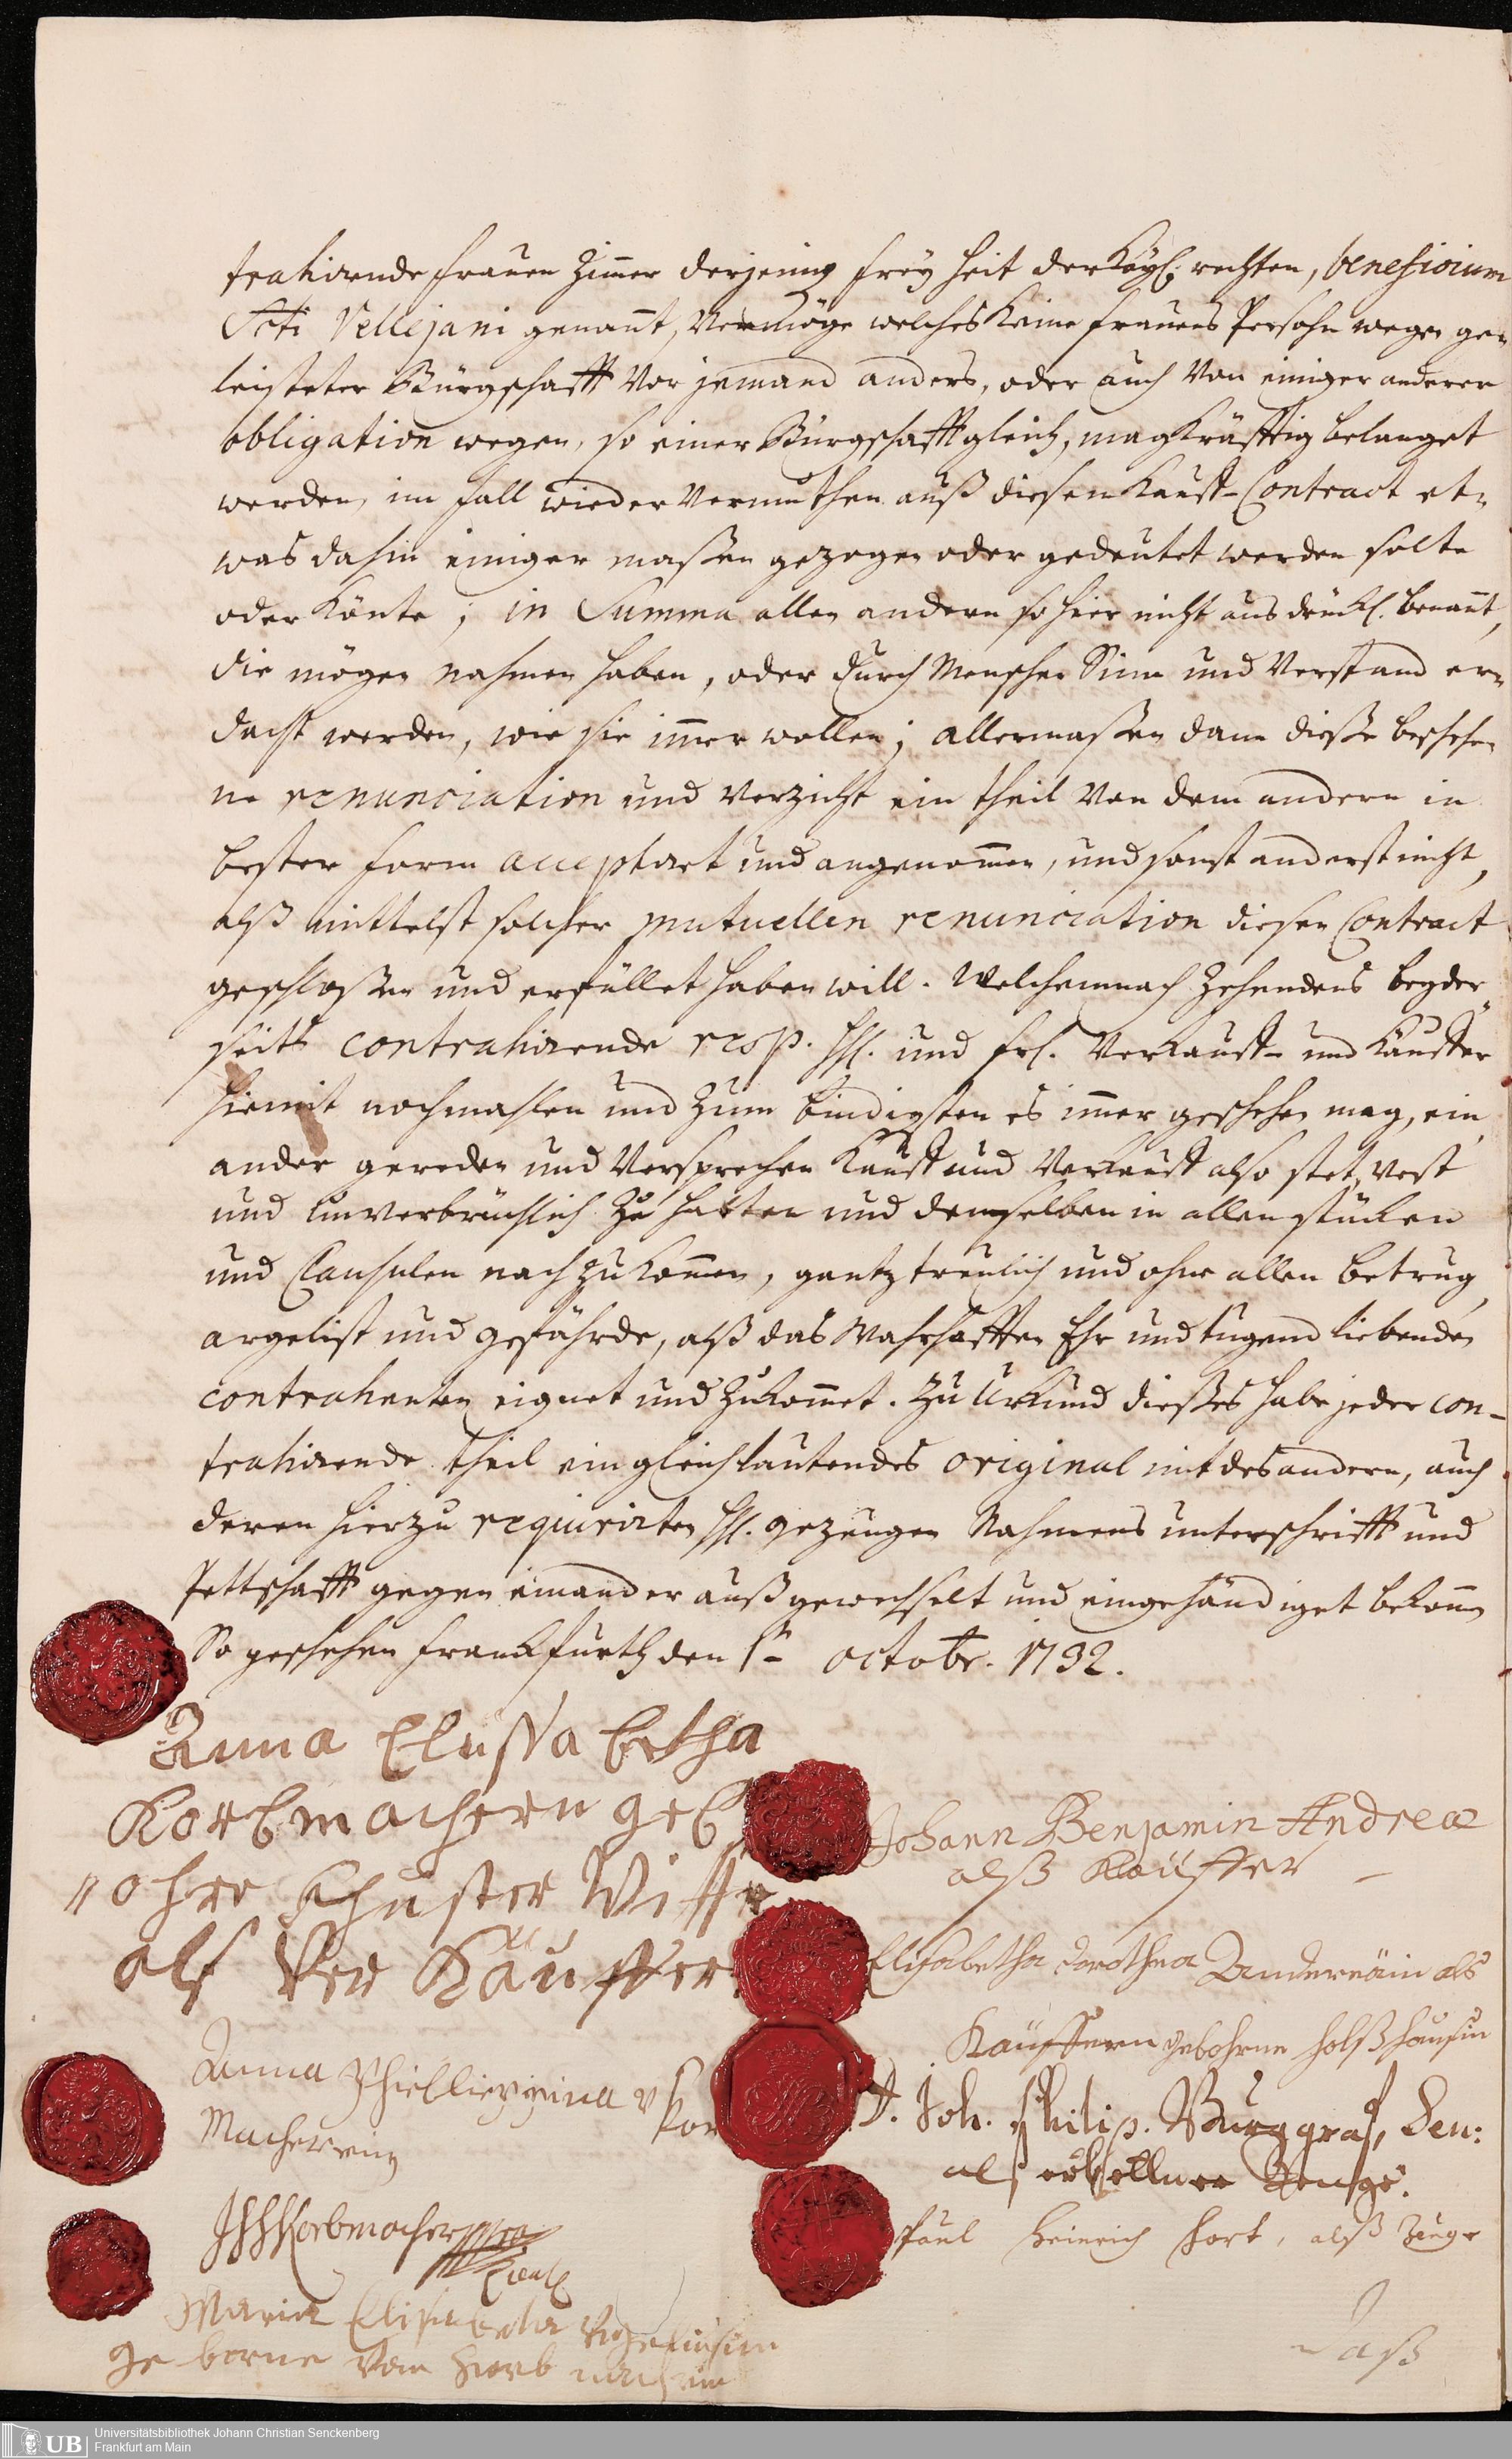 trahirende Frauen Zimmer derjenig Freyheit der Kayßl. rechten, beneficium
Scti Vellejani genañt, Vermöge welches Keine Frauens Persohn wegen ge-
leisteter Bürgschafft Vor jemand anders, oder auch Von einiger anderer
obligation wegen, so einer Bürgschafft gleich, mag Kräfftig belanget
werden, im fall wieder Vermuthen auß diesen Kauff-Contract et-
was dahin einiger maßen gezogen oder gedeutet werden solte
oder Könte; in Summa allen andern so hier nicht ausdrückl. benañt,
die mögen nahmen haben, oder durch Menschen Sinn und Verstand er-
dacht werden, wie sie im̃er wollen; allermaßen dann dieße beschehe-
ne renunciation und Verzicht ein theil Von dem andern in
bester form acceptiret und angenom̃en, und sonst anderst nicht,
alß mittelst solcher mutuellen renunciation diesen Contract
geschloßen und erfüllet haben will. Welchemnach Zehendens beyder-
seits contrahirende resp. HH. und Fr. Verkauff- und Käuffer
hiemit nochmahlen und Zum bündigsten es im̃er geschehen mag, ein
ander gereden und Versprechen Kauff und Verkauff also stet, vest
und unverbrüchlich Zu halten und demselben in allen stücken
und Clausulen nachzukom̃en, gantz treulich und ohne allen betrug,
argelist und gefährde, alß das Wahrhafften Ehr und tugend liebenden
contrahenten eignet und Zukom̃et. Zu Urkund dießes habe jeder con-
trahirende theil ein gleichlautendes original mit des andern, auch
deren hierzu requirirten HH. gezeugen Nahmens unterschrifft und
Pettschafft gegen einander außgewechselt und eingehändiget bekom̃en
So geschehen Franckfurth den 1n octobr. 1732.
Anna Elissabetha
Korbmachern geb
Schuster Wittw
als Ver Käuffer
Johann Benjamin Andreæ
alß Käuffer
Elisabetha Dorothea Andereäin als
Käufferin gebohrne Holßhäusin
Anna Philliepina
Kor
Macherrin
D. Joh. Philip. Burggraf, Sen:
als erbettner Zeuge.
JHHKorbmacher
Paul Heinrich Hort, alß Zeuge
Maria Elisabetha
ge borne Korb
Daß
Universitätsbibliothek Johann Christian Senckenberg
UB
Frankfurt am Main